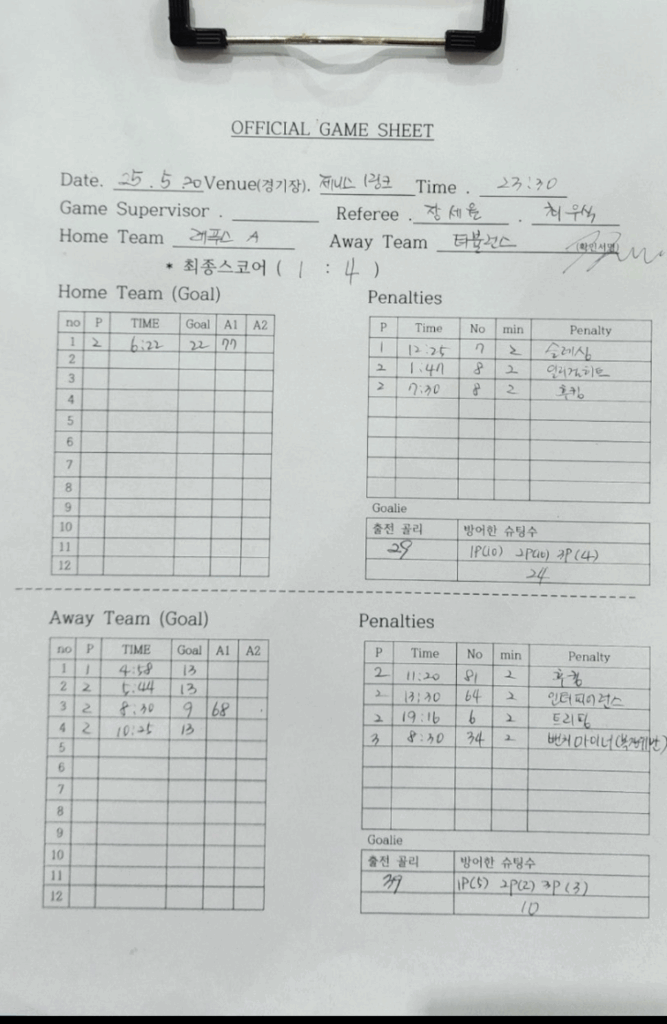 OFFICIAL GAME SHEET
Date. 25.5.20 Venue(경기장). 제니스 1링크 Time . 23:30
Game Supervisor . Referee . 장세율 . 최우식
Home Team 레푸스 A Away Team 터뷸런스 (확인서명)
* 최종스코어 ( 1 : 4 )
Home Team (Goal)
no P TIME Goal A1 A2
1 2 6:22 22 77
2
3
4
5
6
7
8
9
10
11
12
Penalties
P Time No min Penalty
1 12:25 7 2 슬래싱
2 1:47 8 2
2 7:30 8 2 후킹
Goalie
출전 골리 방어한 슈팅수
29 1P(10) 2P(10) 3P(4)
24
Away Team (Goal)
no P TIME Goal A1 A2
1 1 4:58 13
2 2 5:44 13
3 2 8:30 9 68
4 2 10:25 13
5
6
7
8
9
10
11
12
Penalties
P Time No min Penalty
2 11:20 81 2 후킹
2 13:30 64 2 인터피어런스
2 19:16 6 2 트리핑
3 8:30 34 2 벤치마이너(복장위반)
Goalie
출전 골리 방어한 슈팅수
39 1P(5) 2P(2) 3P(3)
10